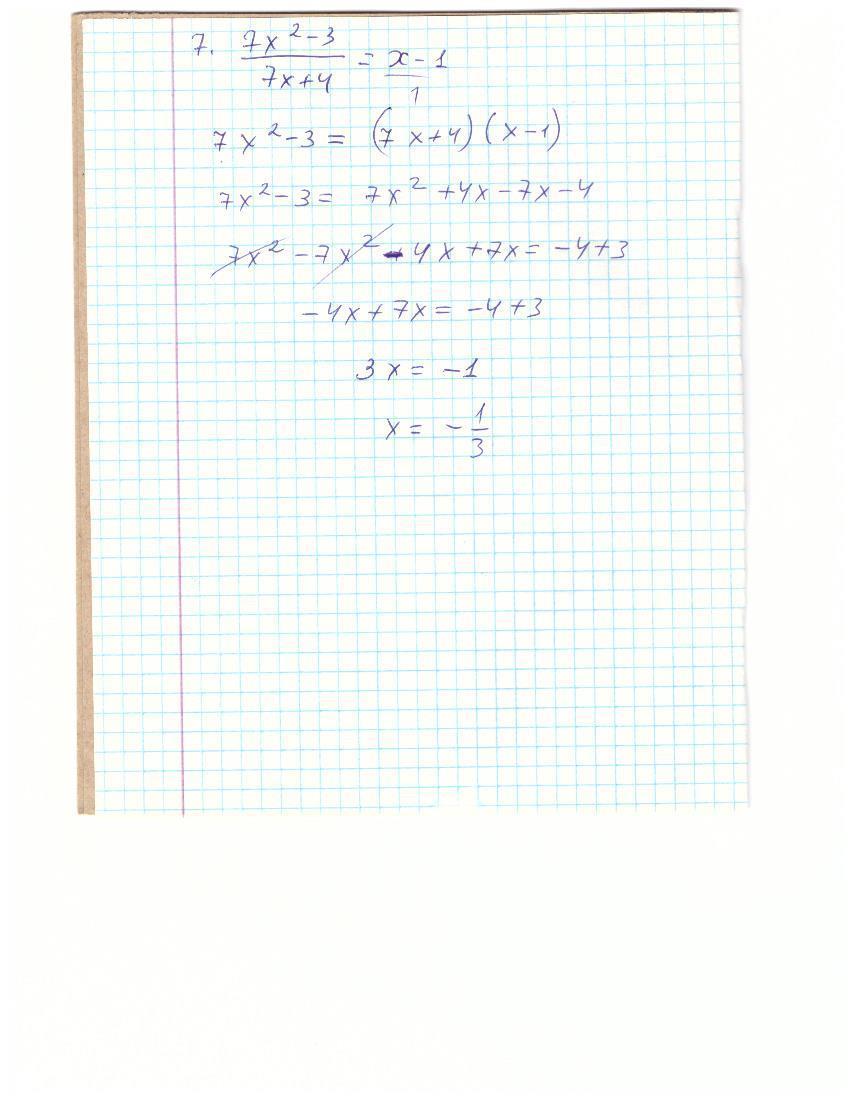 7. (7x²-3)/(7x+4) = (x-1)/1
7x²-3 = (7x+4)(x-1)
7x²-3 = 7x²+4x-7x-4
7x²-7x²-4x+7x = -4+3
-4x+7x = -4+3
3x = -1
x = -1/3